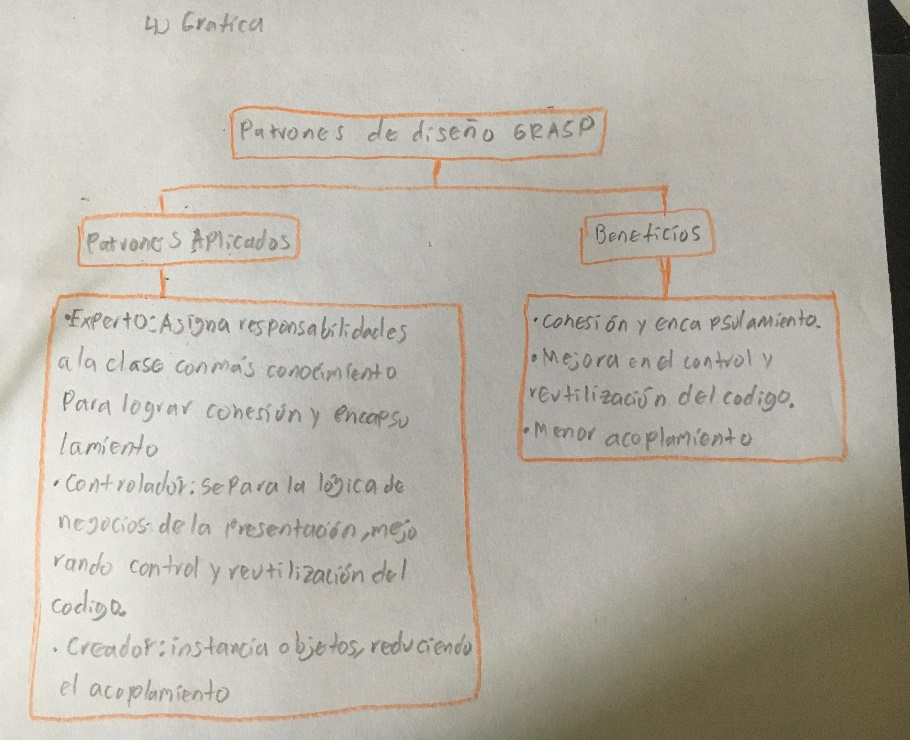 4) Grafica
Patrones de diseño GRASP
Patrones Aplicados
•Experto: Asigna responsabilidades
a la clase con más conocimiento
Para lograr cohesión y encapsu
lamiento
•Controlador: separa la lógica de
negocios de la presentación, mejo
rando control y reutilización del
codigo.
•Creador: instancia objetos, reduciendo
el acoplamiento
Beneficios
•cohesión y encapsulamiento.
•Mejora en el control y
reutilización del codigo.
•Menor acoplamiento